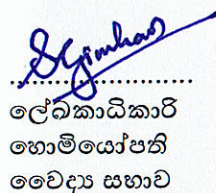 ........................
ලේඛකාධිකාරි
හොමියෝපති
වෛද්‍ය සභාව